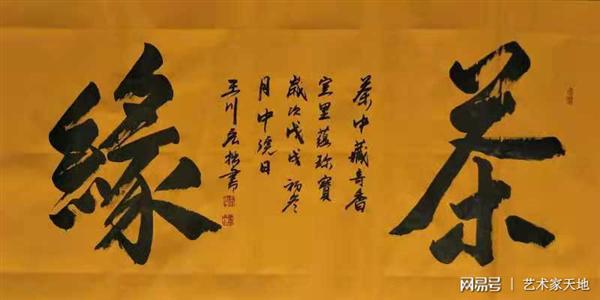 茶
茶中藏奇香
室里蕴珍寶
歲次戊戌初冬
月中浣日
王川拙書
緣
网易号 | 艺术家天地